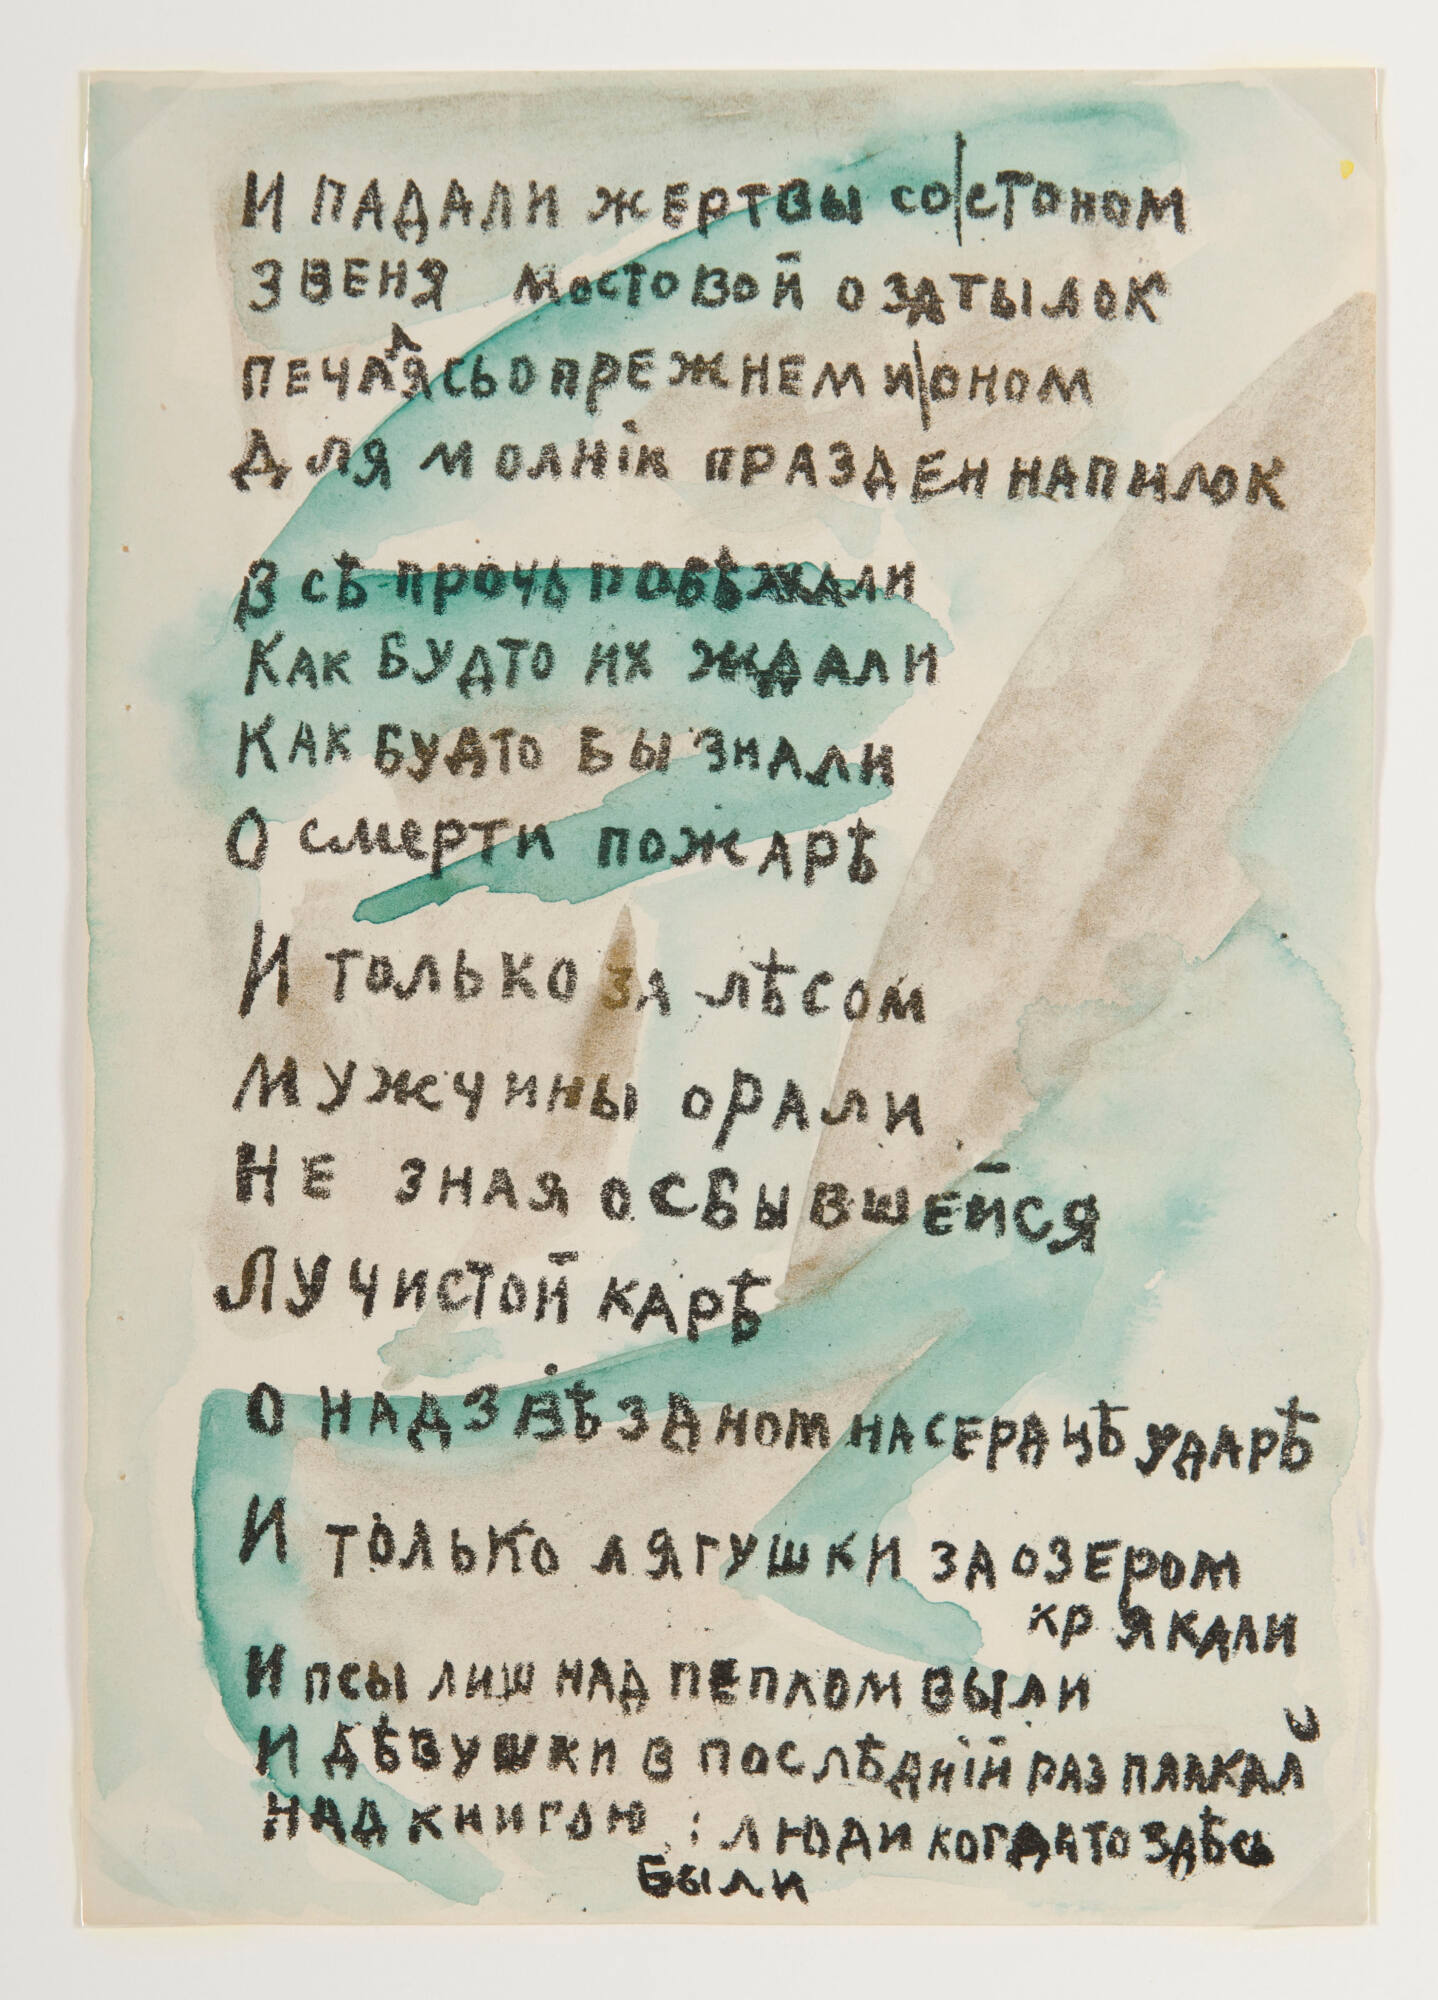 И ПАДАЛИ ЖЕРТВЫ СО СТОНОМ
ЗВЕНЯ МОСТОВОЙ О ЗАТЫЛОК
ПЕЧАЛЯСЬ О ПРЕЖНЕМ И ОНОМ
ДЛЯ МОЛНІК ПРАЗДЕН НАПИЛОК
ВСѢ ПРОЧЬ ПОБѢЖАЛИ
КАК БУДТО ИХ ЖДАЛИ
КАК БУДТО БЫ ЗНАЛИ
О СМЕРТИ ПОЖАРѢ
И ТОЛЬКО ЗА ЛѢСОМ
МУЖЧИНЫ ОРАЛИ
НЕ ЗНАЯ О СБЫВШЕЙСЯ
ЛУЧИСТОЙ КАРѢ
О НАДЗВѢЗДНОМ НА СЕРДЦѢ УДАРѢ
И ТОЛЬКО ЛЯГУШКИ ЗА ОЗЕРОМ
КРЯКАЛИ
И ПСЫ ЛИШ НАД ПЕПЛОМ ВЫЛИ
И ДѢВУШКИ В ПОСЛѢДНІЙ РАЗ ПЛАКАЛИ
НАД КНИГОЮ : ЛЮДИ КОГДАТО ЗДѢСЬ
БЫЛИ